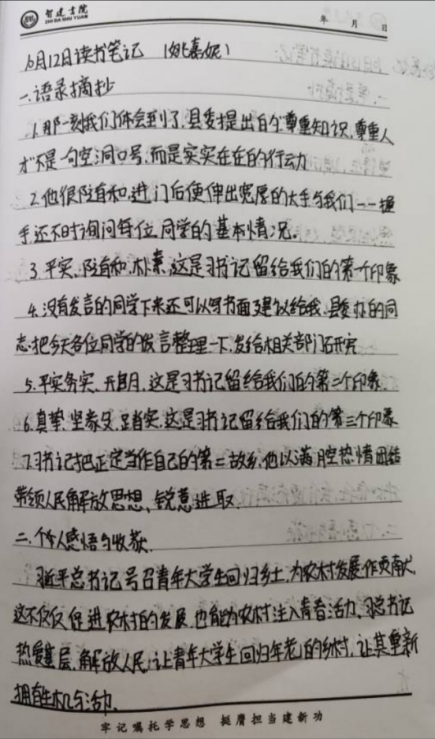 智达书院
ZHI DA SHU YUAN
年 月 日
10月12日读书笔记 (姚嘉妮)
一.语录摘抄
1.那一刻我们体会到了,县委提出的"尊重知识,尊重人
才"不是一句空洞口号,而是实实在在的行动
2.他很随和,进门后便伸出宽厚的大手与我们一一握
手还不时询问每位同学的基本情况。
3.平实、随和、朴素,这是习书记留给我们的第一个印象
4.没有发言的同学下来还可以写书面建议给我,县委办的同
志把今天各位同学的发言整理一下,发给相关部门研究
5.平实务实、开明,这是习书记留给我们的第二个印象.
6.真挚、坚毅、踏实,这是习书记留给我们的第三个印象
7.习书记把正定当作自己的第二故乡,他以满腔热情团结
带领人民解放思想、锐意进取.
二.个人感悟与收获.
习近平总书记号召青年大学生回归乡土,为农村发展作贡献,
这不仅仅促进农村的发展,也能为农村注入青春活力,习总书记
热爱基层,解放人民,让青年大学生回归年老的乡村,让其重新
拥有生机与活力.
牢记嘱托学思想 挺膺担当建新功